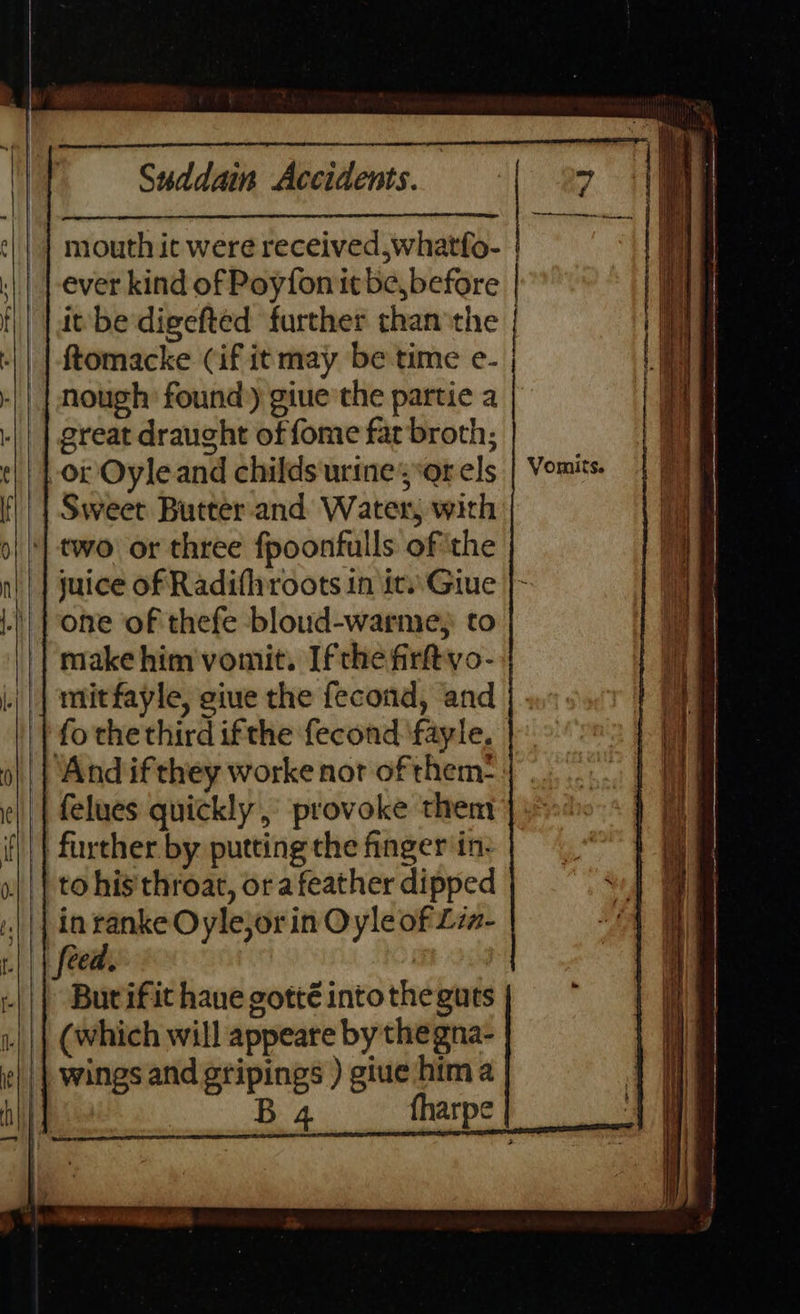 Suddain Accidents. 7
mouth it were received, whatſo-
ever kind of Poyſon it be, before
it be digeſted further than the
ſtomacke (if it may be time e-
nough found) giue the partie a
great draught of ſome fat broth;
or Oyle and childs urine; or els
Vomits.
Sweet Butter and Water, with
two or three ſpoonfulls of the
juice of Radiſh roots in it. Giue
one of theſe bloud-warme, to
make him vomit. If the firſt vo-
mit fayle, giue the ſecond, and
ſo the third if the ſecond fayle.
And if they worke not of them-
ſelues quickly, provoke them
further by putting the finger in-
to his throat, or a feather dipped
in ranke Oyle, or in Oyle of Lin-
ſeed.
But if it haue gottē into the guts
(which will appeare by the gna-
wings and gripings) giue him a
B 4 ſharpe